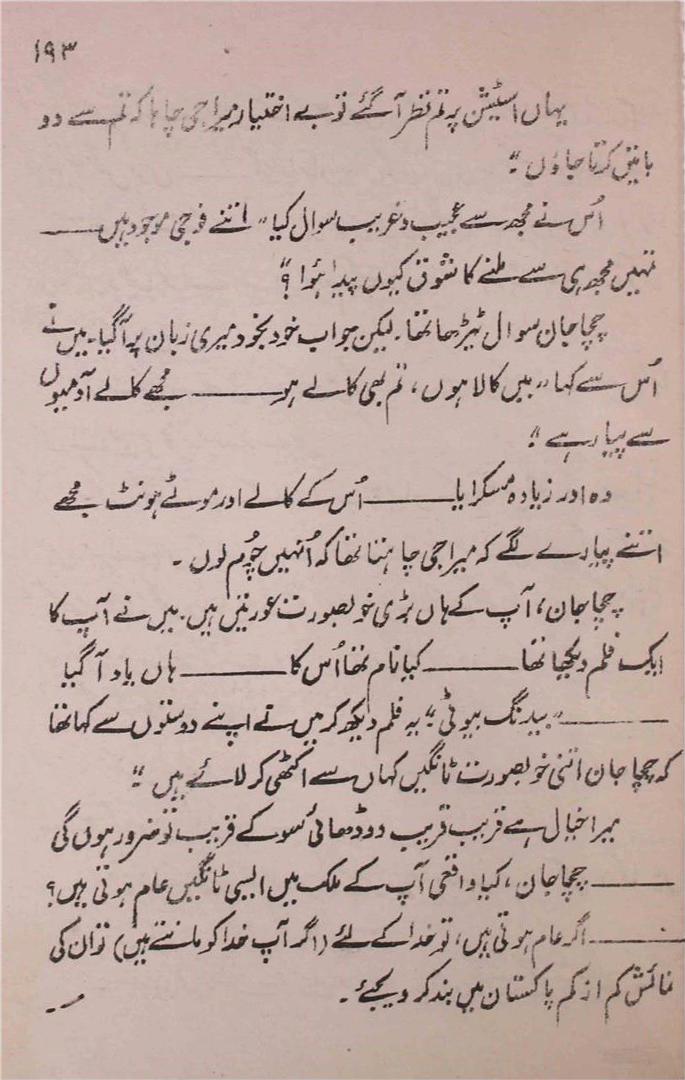 ۱۹۳
یہاں اسٹیشن پہ تم نظر آ گئے تو بے اختیار میرا جی چاہا کہ تم سے دو
باتیں کرتا جاؤں ۔“
اُس نے مجھ سے عجیب و غریب سوال کیا ”اتنے فوجی موجود ہیں ــــــ
تمہیں مجھ ہی سے ملنے کا شوق کیوں پیدا ہُوا ؟“
چچا جان سوال ٹیڑھا تھا۔ لیکن جواب خود بخود میری زبان پر آ گیا۔ میں نے
اُس سے کہا ”میں کالا ہوں، تم بھی کالے ہو ــــــ مجھے کالے آدمیوں
سے پیار ہے ۔“
وہ اور زیادہ مسکرایا ــــــ اُس کے کالے اور موٹے ہونٹ مجھے
اتنے پیارے لگے کہ میرا جی چاہتا تھا کہ اُنہیں چوُم لوں ۔
چچا جان، آپ کے ہاں بڑی خوبصورت عورتیں ہیں۔ میں نے آپ کا
ایک فلم دیکھا تھا ــــــ کیا نام تھا اُس کا ــــــ ہاں یاد آ گیا
ــــــ ”بیدنگ بیوٹی“ یہ فلم دیکھ کر میں نے اپنے دوستوں سے کہا تھا
کہ چچا جان اتنی خوبصورت ٹانگیں کہاں سے اکٹھی کر لائے ہیں ۔“
میرا خیال ہے قریب قریب دو ڈھائی سَو کے قریب تو ضرور ہوں گی
ــــــ چچا جان، کیا واقعی آپ کے ملک میں ایسی ٹانگیں عام ہوتی ہیں؟
ــــــ اگر عام ہوتی ہیں، تو خدا کے لئے (اگر آپ خدا کو مانتے ہیں) تو ان کی
نمائش کم از کم پاکستان میں بند کر دیجئے ۔